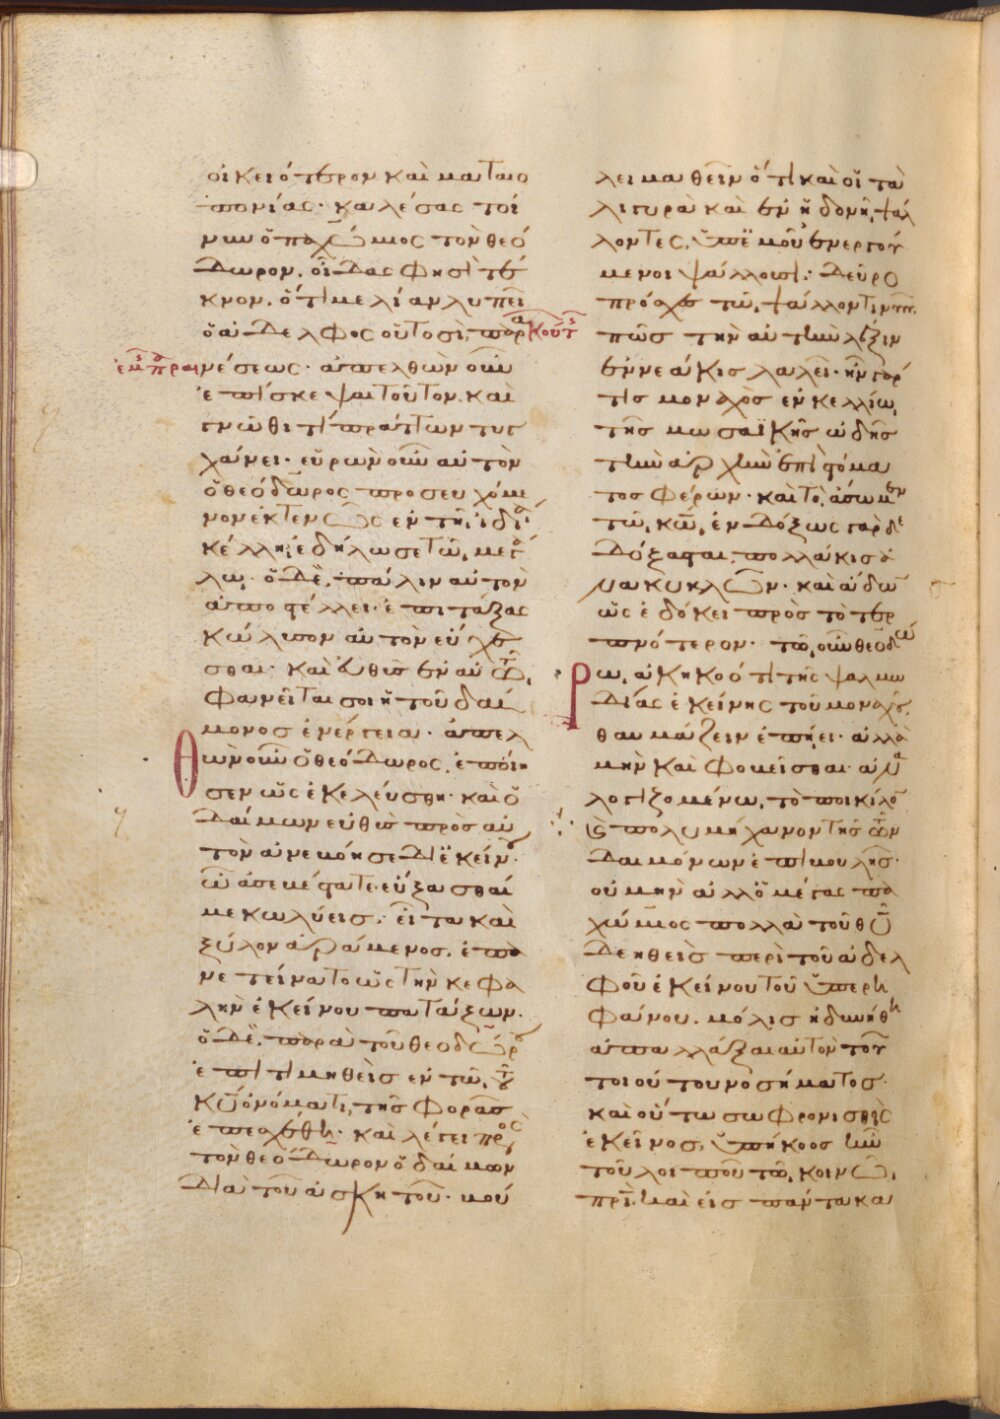 οἰκειότερον καὶ ματαιο
πονίας· καλέσας τοί
νυν ὁ παχώμιος τὸν θεό
δωρον, οἶδας φησὶ τέ
κνον, ὅτι με λίαν λυπεῖ
ὁ ἀδελφὸς οὑτοσὶ, παρ
νέσεως· ἀπελθὼν οὖν
ἐπίσκεψαι τοῦτον. καὶ
γνῶθι τί πράττων τυγ
χάνει· εὑρὼν οὖν αὐτὸν
ὁ θεόδωρος προσευχόμε
νον ἐκτενῶς ἐν τῆ ἰδίᾳ
κέλλη, ἐδήλωσε τῶ μεγά
λω· ὁ δὲ, πάλιν αὐτὸν
ἀποστέλλει· ἐπιτάξας
κώλυσον αὐτὸν εὔχε
σθαι· καὶ εὐθὺς ἐν αὐτῶ,
φανεῖταί σοι ἡ τοῦ δαί
μονος ἐνέργεια· ἀπελ
θὼν οὖν ὁ θεόδωρος, ἐποίη
σεν ὡς ἐκελεύσθη· καὶ ὁ
δαίμων εὐθὺς πρὸς αὐ
τὸν ἀνεβόησε δι' ἐκείνου·
ὦ ἀσεβέστατε· εὔξασθαί
με κωλύεις· εἶτα καὶ
ξύλον ἀράμενος. ἐπα
νετείνατο ὡς τὴν κεφα
λὴν ἐκείνου πατάξων·
ὁ δὲ, παρὰ τοῦ θεοδώρου
ἐπιτιμηθεὶς ἐν τῶ τοῦ
κυ ὀνόματι, τῆς φορᾶς
ἐπεσχέθη· καὶ λέγει πρὸς
τὸν θεόδωρον ὁ δαίμων
διὰ τοῦ ἀσκητοῦ· βού
λει μαθεῖν ὅτι καὶ οἳ τὰ
λιγυρὰ καὶ ἐν ἡδονῆ ψάλ
λοντες, ὑπ' ἐμοῦ ἐνεργού
μενοι ψάλλουσι· δεῦρο
πρόσχες τῶ ψάλλοντι,
πῶς τὴν αὐτὴν λέξιν
ἐννεάκις λαλεῖ· ἦν γάρ
τις μοναχὸς ἐν κελλίω,
τῆς μωσαϊκῆς ὠδῆς
τὴν ἀρχὴν ἐπὶ στόμα
τος φέρων· καὶ τὸ, ἄσωμεν
τῶ κω, ἐνδόξως γὰρ δε
δόξασται, πολλάκις ἀ
νακυκλῶν· καὶ ἄδων
ὡς ἐδόκει πρὸς τὸ τερ
πνότερον· τῶ οὖν θεοδώ
ρω, ἀκηκοότι τῆς ψαλμω
δίας ἐκείνης τοῦ μοναχοῦ,
θαυμάζειν ἐπήει· ἀλλὰ
μὴν καὶ φοβεῖσθαι· ἀνα
λογιζομένω, τὸ ποικίλον
καὶ πολυμήχανον τῆς τῶν
δαιμόνων ἐπιβουλῆς·
οὐ μὴν ἀλλ' ὁ μέγας πα
χώμιος πολλὰ τοῦ θυ
δεηθεὶς περὶ τοῦ ἀδελ
φοῦ ἐκείνου τοῦ ὑπερη
φάνου. μόλις ἠδυνήθη
ἀπαλλάξαι αὐτὸν τοῦ
τοιούτου νοσήματος·
καὶ οὕτω σωφρονισθεὶς
ἐκεῖνος, ὑπήκοος ἦν
τοῦ λοιποῦ τῶ κοινῶ,
πρὶ καὶ εἰς πάντα κα